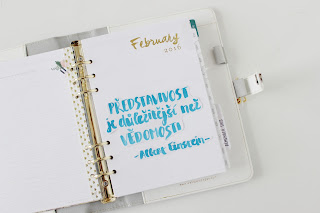 February
2016
PŘEDSTAVIVOST
je důležitější než
VĚDOMOSTI
-Albert Einstein-